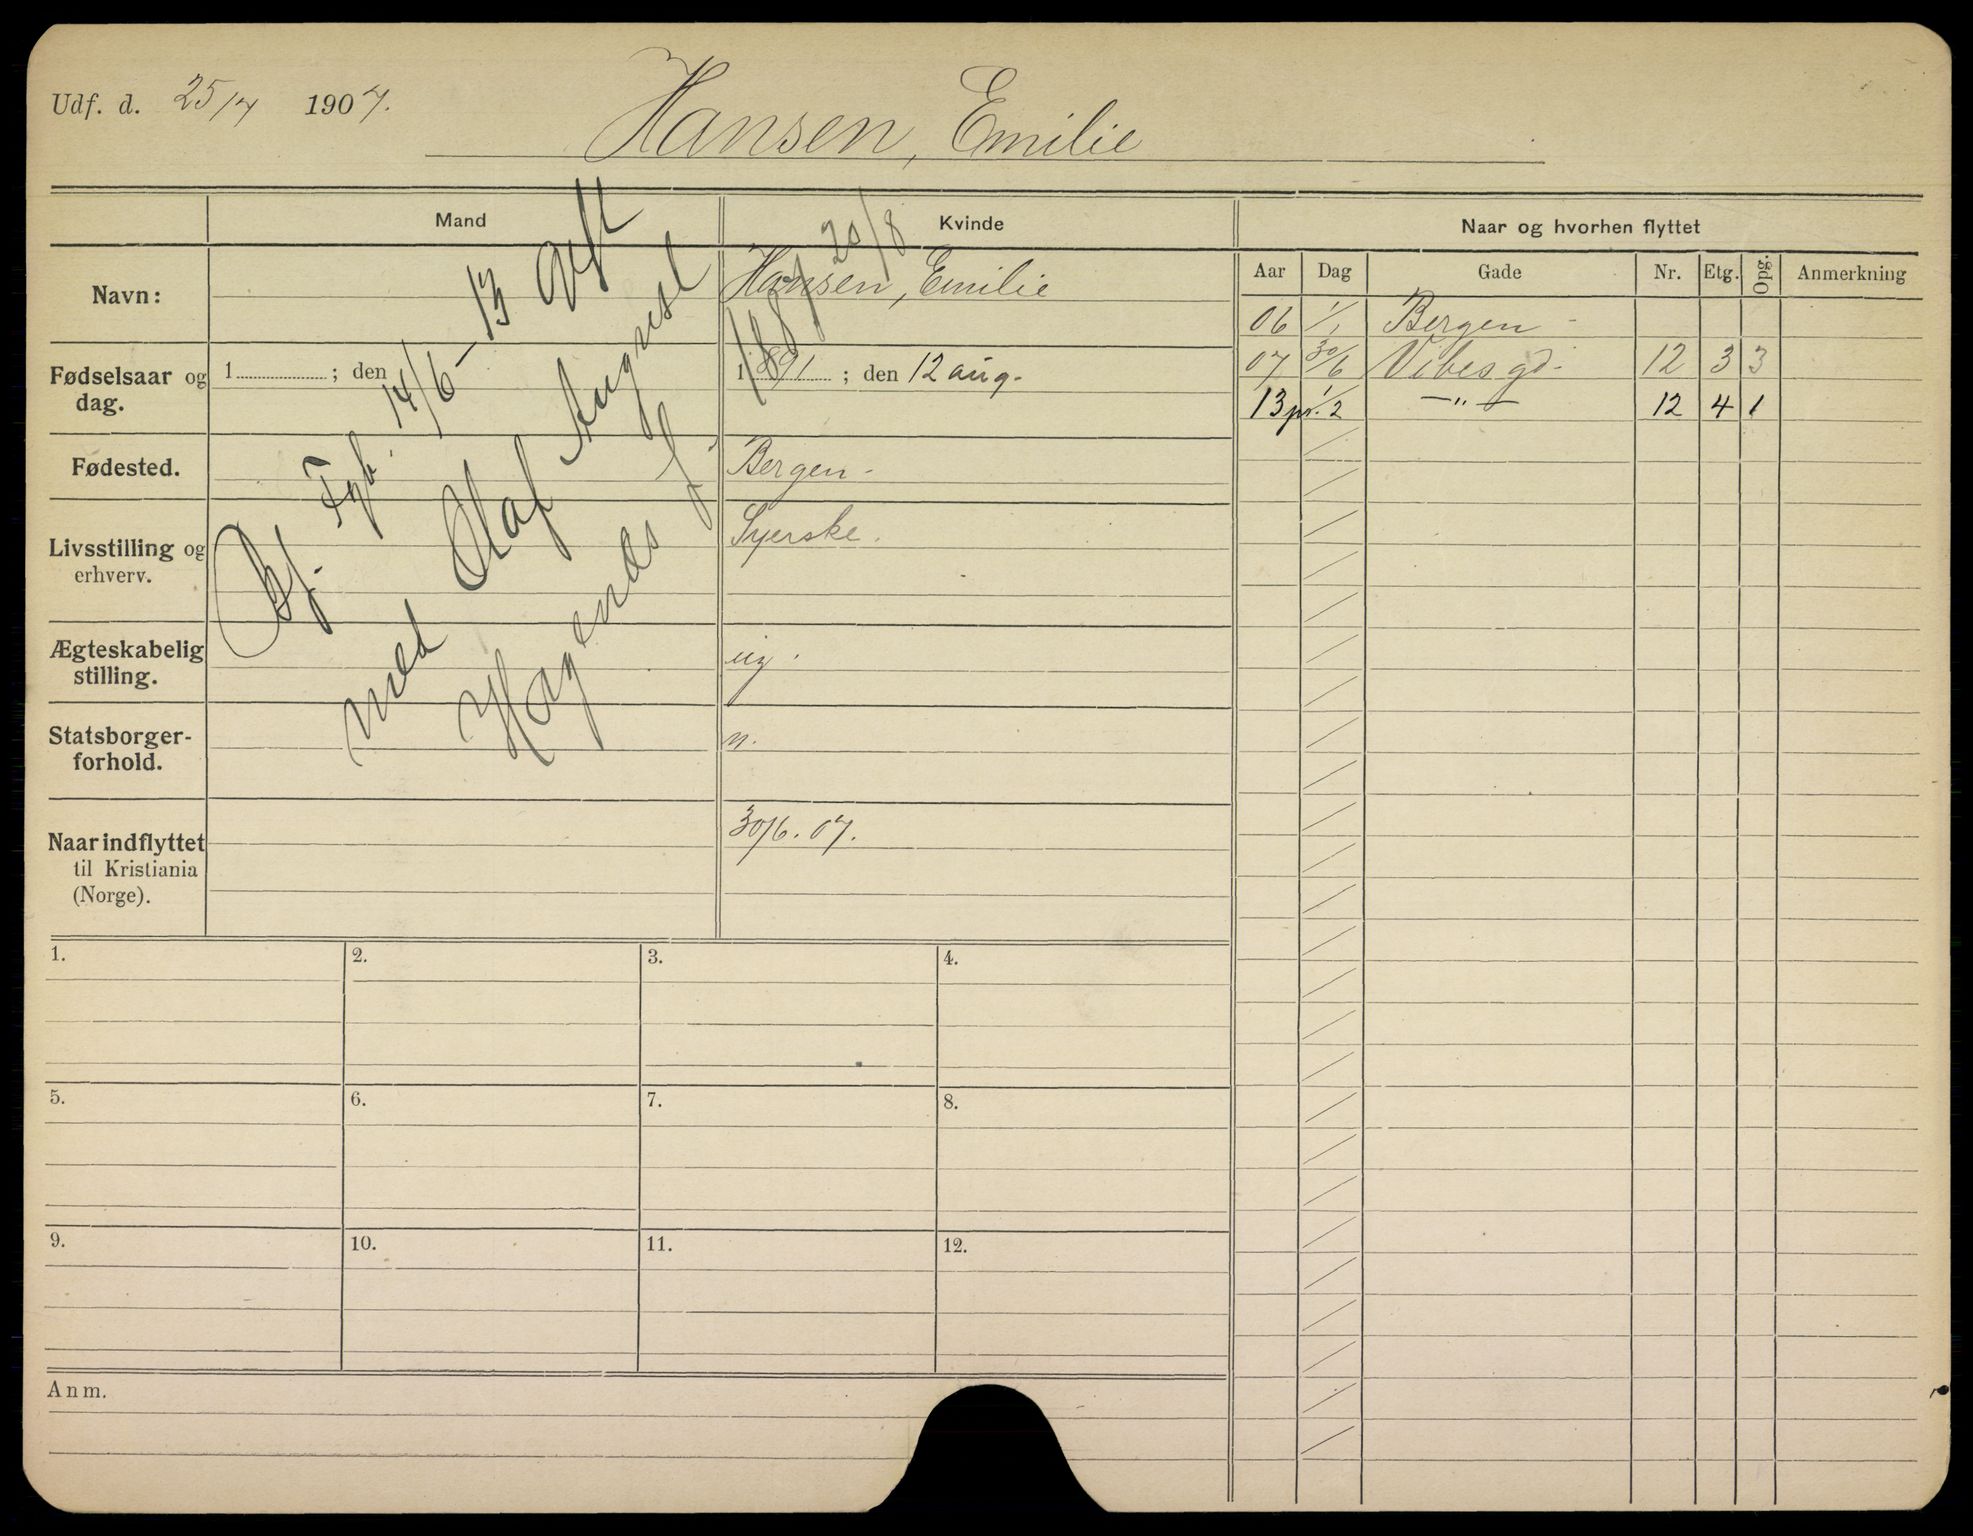 Udf. d. 25/7 1907.
Hansen, Emilie
Mand
Kvinde
Naar og hvorhen flyttet
Navn:
Hansen, Emilie
Aar Dag Gade Nr. Etg. Opg. Anmerkning
06 1/1 Bergen -
07 30/6 Vibes gd. 12 3 3
13 pr. 1/2 —"— 12 4 1
Fødselsaar og dag.
1 ; den
1891 ; den 12 aug.
Fødested.
Bergen -
Livsstilling og erhverv.
Syerske.
Ægteskabelig stilling.
ug.
Statsborger-
forhold.
n.
Naar indflyttet
til Kristiania
(Norge).
30/6. 07.
14/6 - 13 gift
med Olaf August
Hagenæs f.
1887 20/8
1. 2. 3. 4.
5. 6. 7. 8.
9. 10. 11. 12.
Anm.